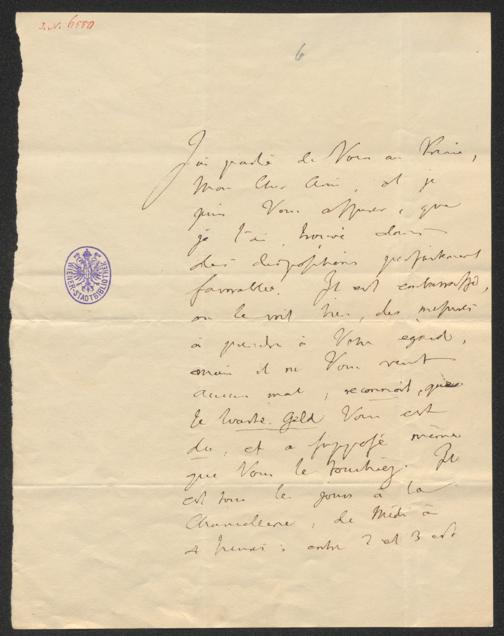 J.N. 6550
6
J'ai parlé de Vous au
Mon Cher Ami, et je
puis Vous assurer, que
je l'ai trouvé dans
des dispositions parfaitement
favorables. Il est embarrassé,
on le voit bien, des mesures
à prendre à Votre égard,
mais il ne Vous veut
aucun mal, reconnoit, que
le Warte-Geld Vous est
du, et a supposé même
que Vous le touchiez. Il
est tous les jours à la
Chancellerie, de Midi à
4 heures: entre 2 et 3 est
WIENER-STADTBIBLIOTHEK